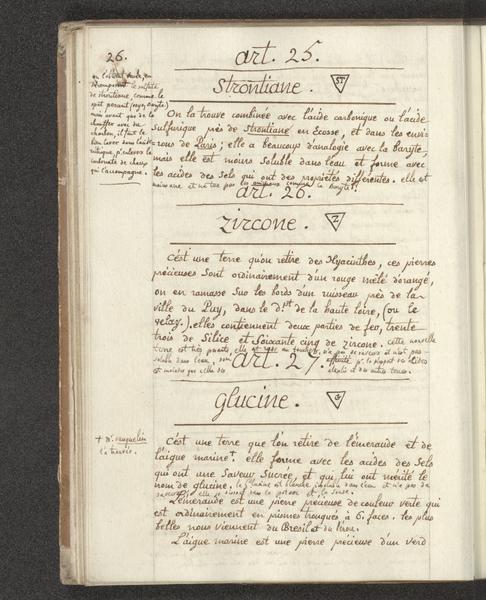 26.
art. 25.
Strontiane. ST
on l'obtient aussi, en
décomposant le sulfate
de strontiane, comme le
spat pesant (voyez baryte)
mais avant que de le
chauffer avec du
charbon, il faut le
bien laver dans l'acide
nitrique, p.r enlever le
carbonate de chaux
qui l'accompagne.
On la trouve combinée avec l'acide carbonique ou l'acide
Sulfurique près de Strontiane en Ecosse, et dans les envi
rons de Paris; elle a beaucoup d'analogie avec la Baryte,
mais elle est moins Soluble dans l'eau et forme avec
les acides des Sels qui ont des propriétés différentes. elle est
moins et n'est pas un comme la baryte.
art. 26.
Zircone. Z
C'est une terre qu'on retire des Hyacinthes, ces pierres
précieuses Sont ordinairement d'un rouge mêlé d'orangé,
on en ramasse Sur les bords d'un ruisseau près de la
ville du Puy, dans le d.pt de la haute loire, (ou le
velay). elles contiennent deux parties de fer, trente
trois de Silice et Soixante cinq de zircone. Cette nouvelle
terre est très pesante, elle est rude au toucher, n'a pas de saveur et n'est pas
soluble dans l'eau, son affinité p.r la plupart des acides
est moindre que celle des alcalis et des autres terres.
art. 27.
Glucine. G
+ M.r Vauquelin
l'a trouvée.
C'est une terre que l'on retire de l'émeraude et de
l'aigue marine+. elle forme avec les acides des Sels
qui ont une Saveur Sucrée, et qui lui ont mérité le
nom de glucine. la glucine est blanche, insoluble dans l'eau et n'a pas de
saveur, elle se dissout dans la potasse et la soude.
L'émeraude est une pierre précieuse de couleur verte qui
est ordinairement en prismes tronqués à 6. faces. les plus
belles nous viennent du Bresil et du Pérou.
L'aigue marine est une pierre précieuse d'un verd